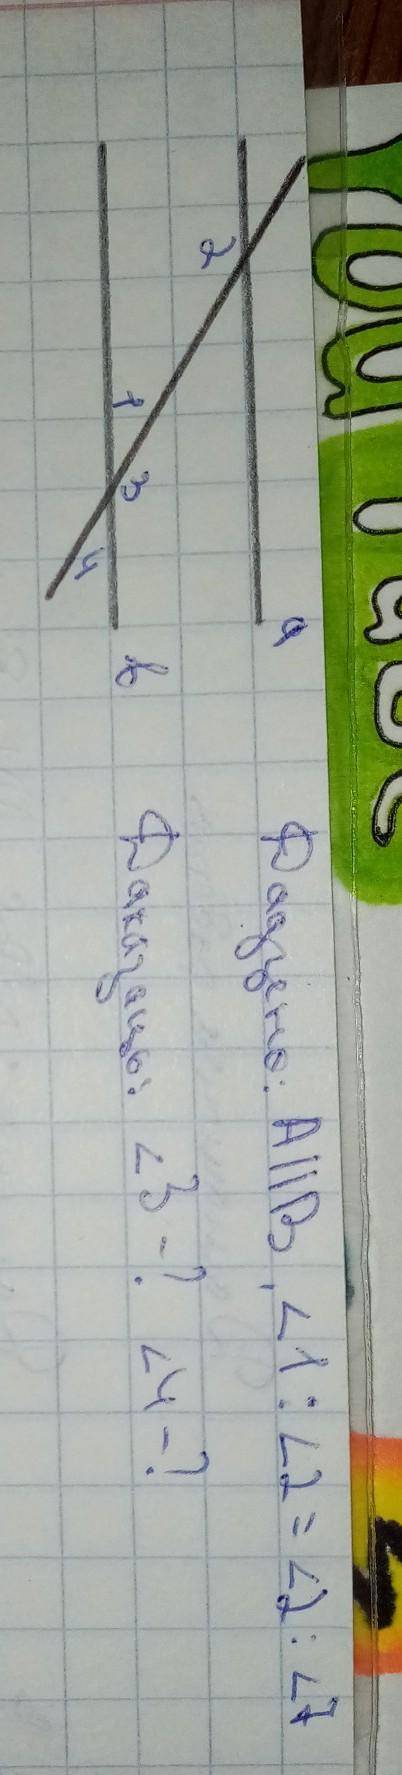 YOU
a
2
1 3
4
b
Дадзено: A||B, ∠1 : ∠2 = ∠2 : ∠7
Даказаць: ∠3 - ? ∠4 - ?